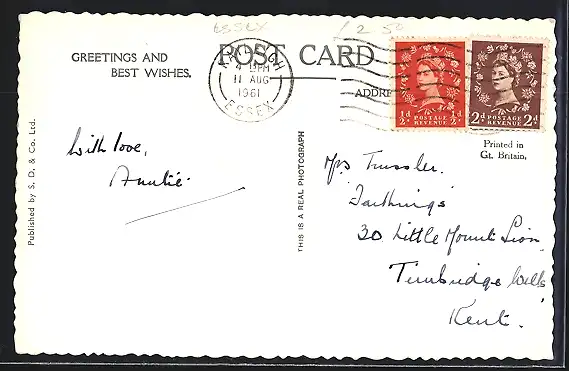 ESSEX
12 50
GREETINGS AND
BEST WISHES.
POST CARD
4 PM
11 AUG
1961
ESSEX
ADDRE
½d ½d
POSTAGE
REVENUE
2d 2d
POSTAGE
REVENUE
Printed in
Gt. Britain.
With love,
Auntie
Published by S. D. & Co. Ltd.
THIS IS A REAL PHOTOGRAPH
Mrs Trussler.
"Farthings"
30 Little Mount Sion
Tunbridge Wells
Kent.